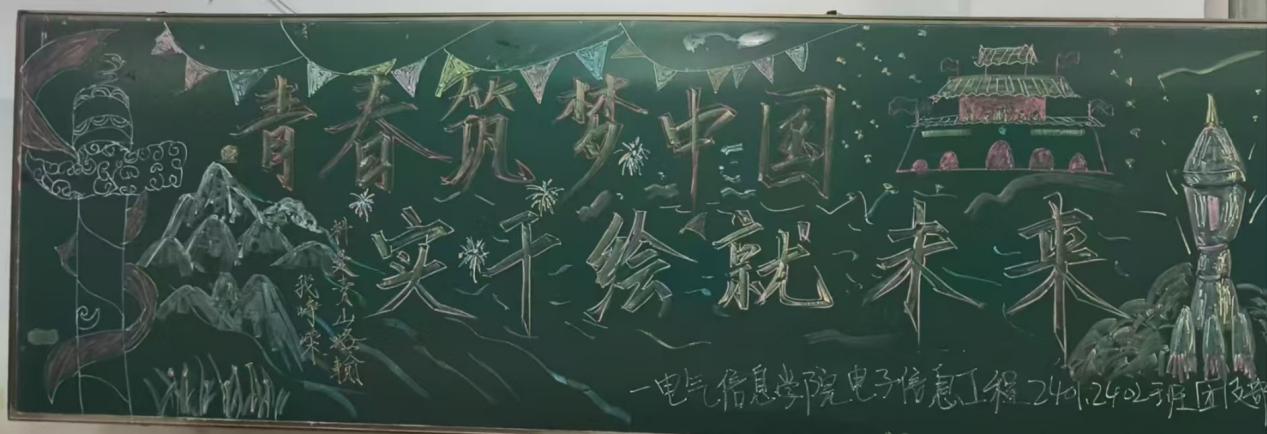 青春筑梦中国
实干绘就未来
一电气信息学院电子信息工程2401,2402班团支部